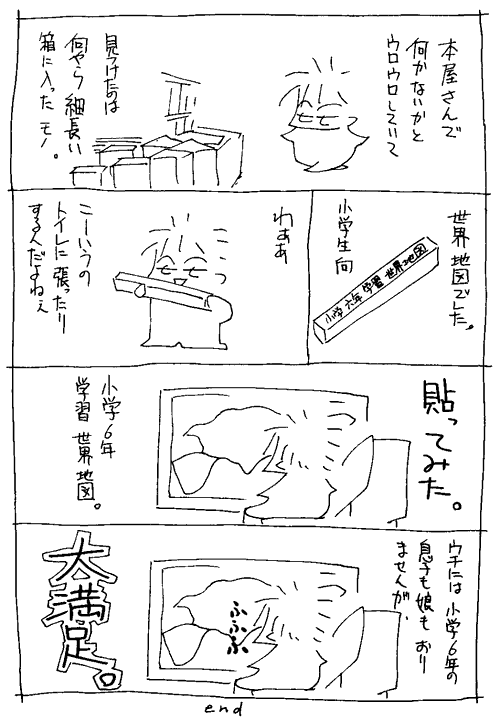 本屋さんで
何かないかと
ウロウロしていて
見つけたのは
何やら細長い
箱に入ったモノ。
世界地図でした。
小学六年 学習 世界地図
小学生向
わぁぁ
こーいうの
トイレに張ったり
するんだよねぇ
貼ってみた。
小学6年
学習 世界地図。
ウチには 小学6年の
息子も娘も おり
ませんが、
ふふふ
大満足。
end